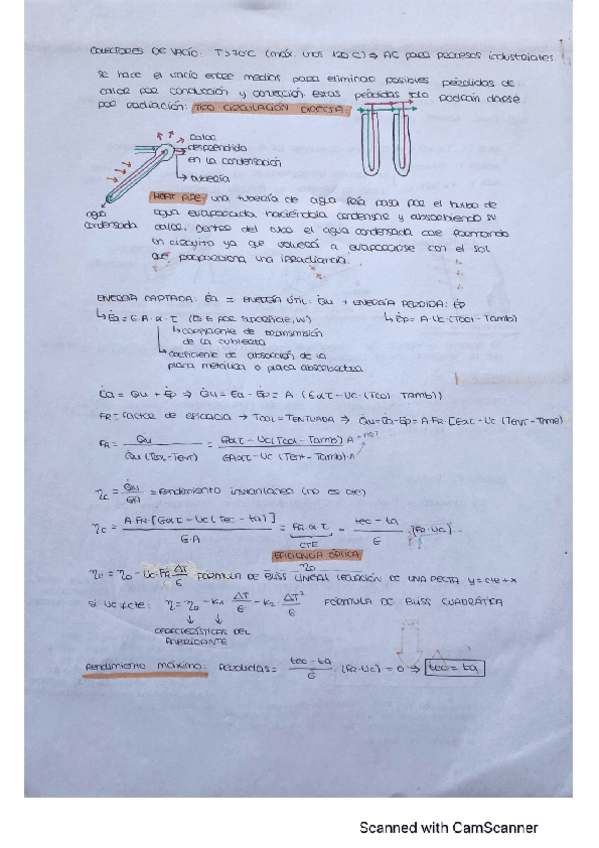 COLECTORES DE VACÍO: T>70ºC (máx. unos 120ºC) ⇒ AC para procesos industriales
se hace el vacío entre medias para eliminar posibles pérdidas de
calor por conducción y convección. estas pérdidas solo podrían darse
por radiación: TIPO CIRCULACIÓN DIRECTA
calor
desprendido
en la condensación
tubería
agua
condensada
HEAT PIPE: una tubería de agua fría pasa por el tubo de
agua evaporada, haciéndola condensarse y absorbiendo su
calor. Dentro del tubo el agua condensada cae formando
un circuito ya que volverá a evaporarse con el sol
que proporciona una irradiancia.
ENERGÍA CAPTADA: Ėa = ENERGÍA ÚTIL: Q̇u + ENERGÍA PERDIDA: Ėp
↳ Ėa = G·A·α·τ (G es por superficie, W) ↳ Ėp = A·Uc (Tcol - Tamb)
↳ coeficiente de transmisión
de la cubierta
↳ coeficiente de absorción de la
placa metálica o placa absorbedora
Ėa = Q̇u + Ėp ⇒ Q̇u = Ėa - Ėp = A · (Gατ - Uc · (Tcol - Tamb)
FR = factor de eficacia → Tcol = TENTRADA ⇒ Q̇u = Ėa - Ėp = A·FR·[Gατ - Uc (Tent - Tamb)
FR = Q̇u / Q̇u (Tcol = Tent) = Gατ - Uc (Tcol - Tamb) A / GAατ - Uc (Tent - Tamb)·A
ηc = Q̇u / GA = rendimiento instantáneo (no es cte)
ηc = A·FR·[Gατ - Uc (tec - ta)] / G·A = FR·ατ - tec - ta / G (FR·Uc)
CTE
EFICIENCIA ÓPTICA
η0
ηc = η0 - Uc·FR ΔT / G FÓRMULA DE BLISS LINEAL (ECUACIÓN DE UNA RECTA y = cte + x
si Uc ≠ cte: η = η0 - K1 ΔT / G - K2 ΔT² / G FÓRMULA DE BLISS CUADRÁTICA
CARACTERÍSTICAS DEL
FABRICANTE
Rendimiento máximo: Pérdidas = tec - ta / G · (FR·Uc) = 0 ⇒ tec = ta
Scanned with CamScanner